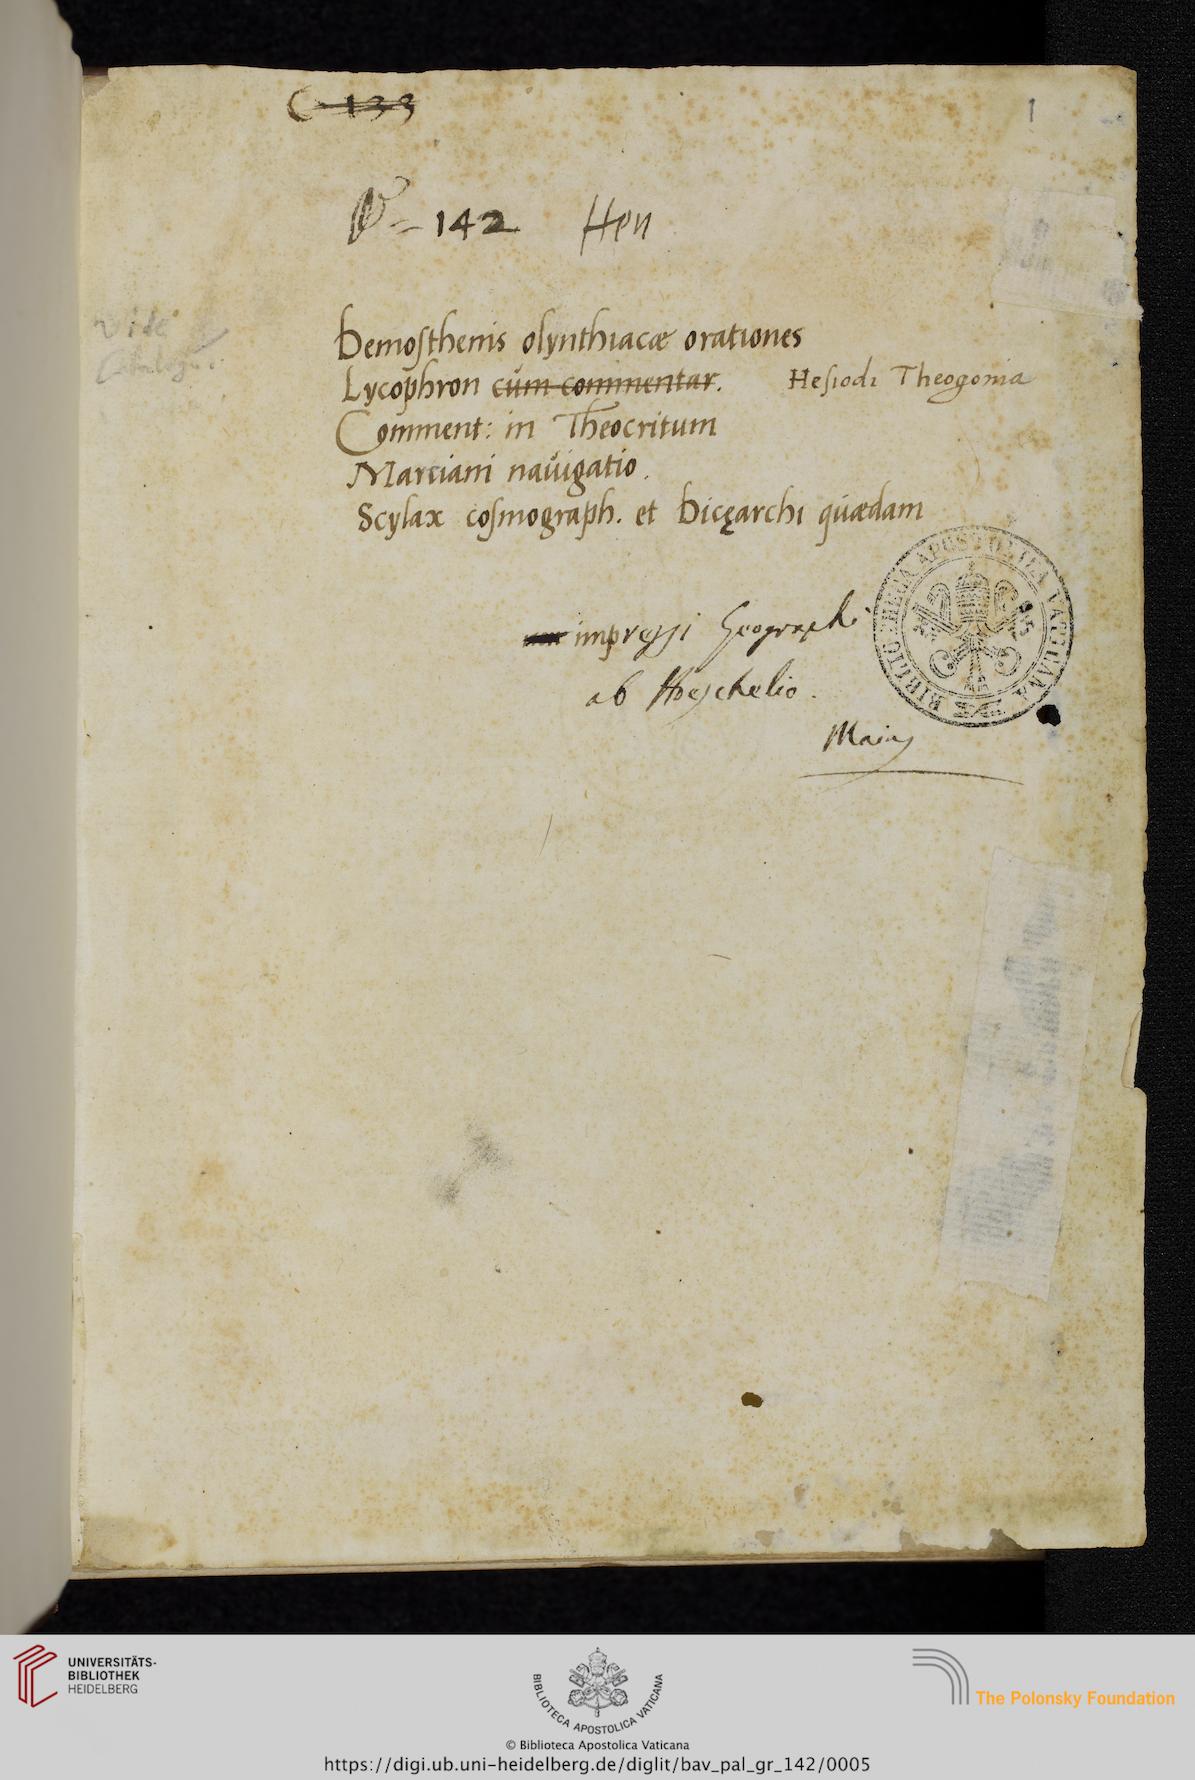 C 133
1
142 Hen
Vide
Demosthenis olynthiacæ orationes
Lycophron cum commentar. Hesiodi Theogonia
Comment: in Theocritum
Marciani navigatio.
Scylax cosmograph. et Dicęarchi quædam
impressi Geographi
ab Hoeschelio.
BIBLIOTHECA APOSTOLICA VATICANA
UNIVERSITÄTS-
BIBLIOTHEK
HEIDELBERG
BIBLIOTECA APOSTOLICA VATICANA
The Polonsky Foundation
© Biblioteca Apostolica Vaticana
https://digi.ub.uni-heidelberg.de/diglit/bav_pal_gr_142/0005